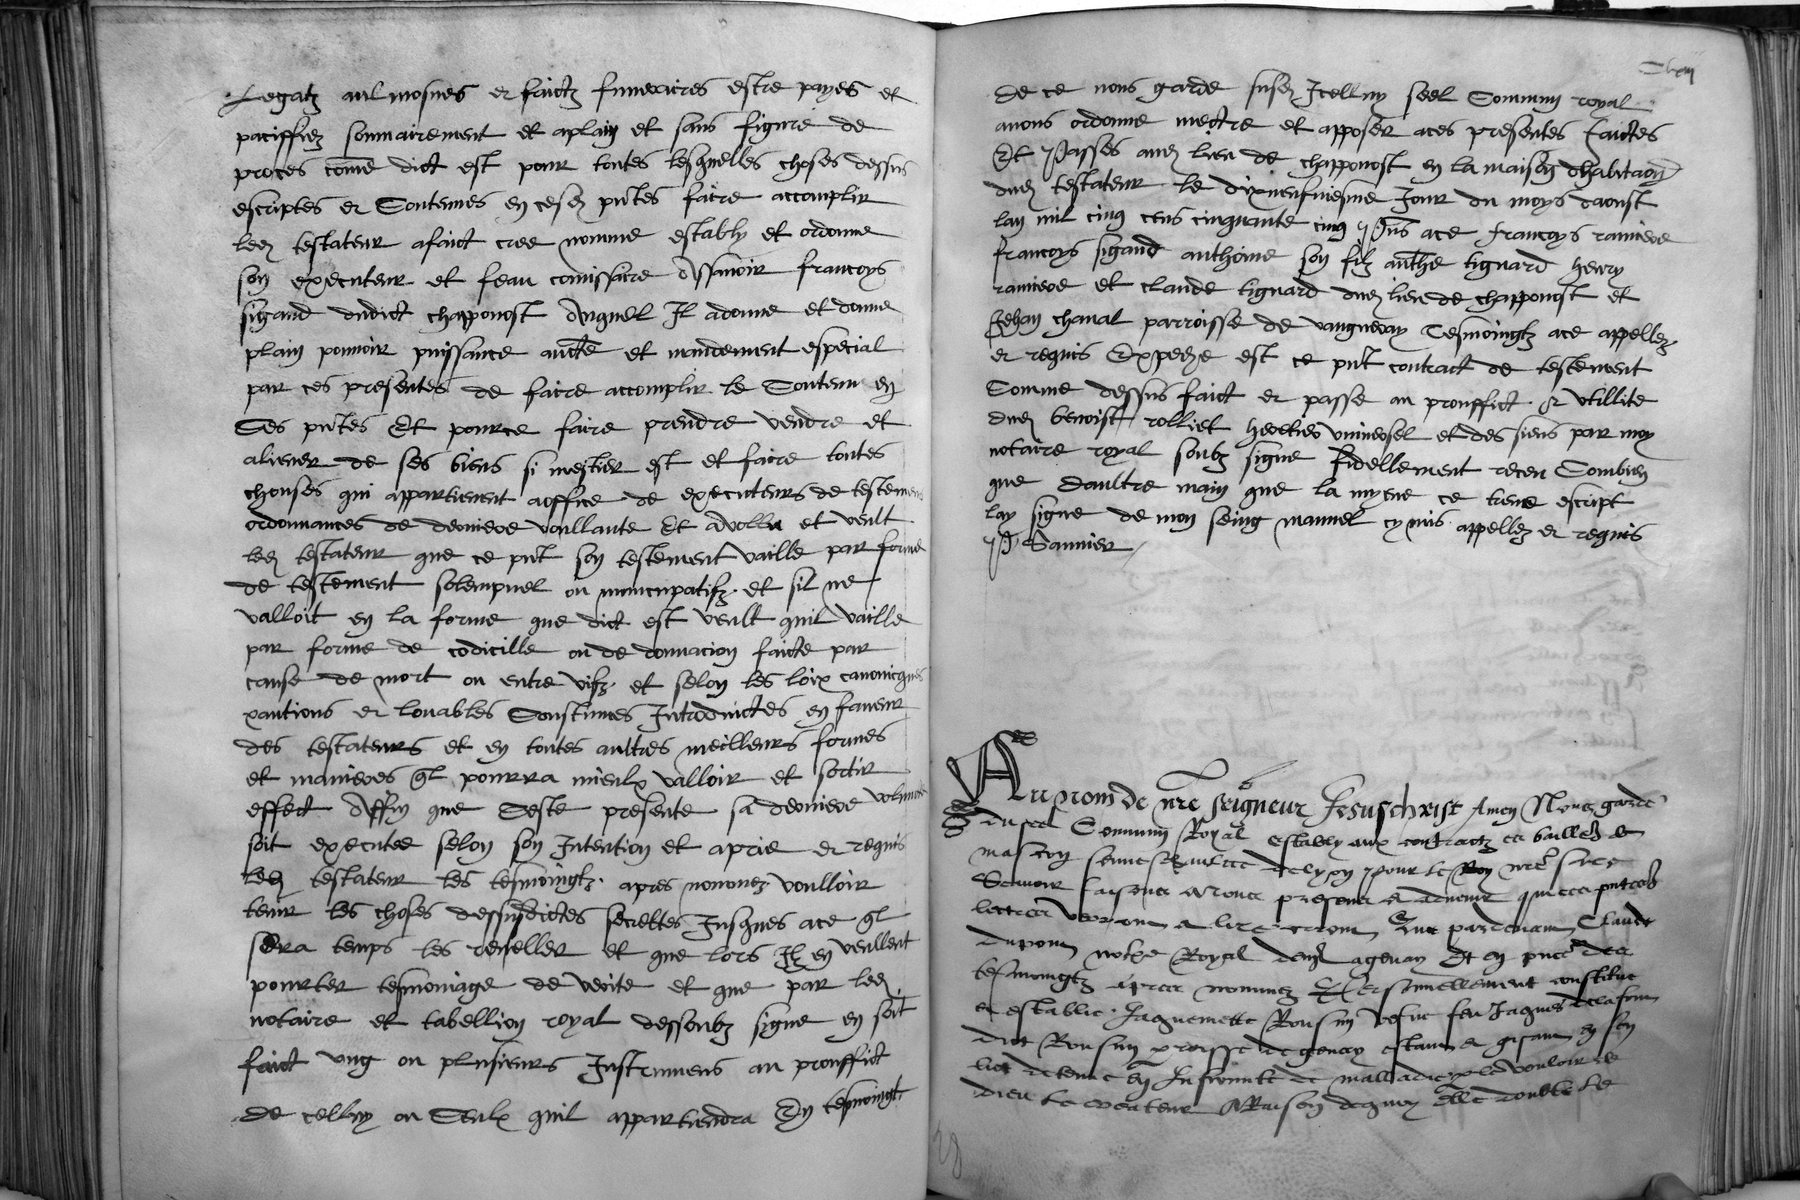 Legatz aulmosnes et faictz funeraires estre payes et
paciffiez sommairement et aplain et sans figure de
proces come dict est pour toutes lesquelles choses dessus
escriptes et Contenues en cesd pntes faire accomplir
led testateur afaict cree nomme estably et ordonne
son executeur et feau comissaire Assavoir francoys
sigaud dudict chapponost Auquel Il adonne et donne
plain pouvoir puissance aucte et mandement especial
par ces presentes de faire accomplir le Contenu en
Ces pntes Et pource faire prendre vendre et
aliener de ses biens si mestier est et faire toutes
chouses qui appartienent aoffice de executeurs de testemens
ordonnances de derniere voullante Et a vollu et veult
led testateur que ce pnt son testement vaille par forme
de testement solempnel ou nuncupatifz et sil ne
valloit en la forme que dict est veult quil vaille
par forme de codicille ou de donnacion faicte par
cause de mort ou entre vifz et selon les loix canonicques
xantions et louables Coustumes Introduictes en faveur
des testateurs et en toutes aultres meilleurs formes
et manieres ql pourra mieulx valloir et sortir
effect Affin que Ceste presente sa derniere volunte
soit executee selon son Intention et aprie et requis
led testateur les tesmoingtz apres nommez voulloir
tenir les choses dessusdictes secrettes Jusques ace ql
sera temps les reveller et que lors Ilz en veullent
pourter tesmoniage de verite et que par led
notaire et tabellion royal dessoubz signe en soit
faict ung ou plusieurs Instrumens au prouffict
de celluy ou Ceulx quil appartiendra En tesmoingt
de ce nous garde susd Icelluy seel Commun royal
avons ordonne mectre et apposer aces presentes faictes
Et Passes aud lieu de chapponost en la maison dhabitaon
dud testateur le dixneufviesme Jour du moys daoust
lan mil cinq cens cinquante cinq Pns ace francoys raniere
francoys sigaud anthoine son filz anthe tignard henry
raniere et claude tignard dud lieu de chapponost et
Jehan chanal parroisse de vaugneray Tesmoingtz ace appellez
et requis Expedye est ce pnt contract de testement
Comme dessus faict et passe au prouffict et utillite
dud benoist rolliet heretier universel et des siens par moy
notaire royal soubz signe fidellement receu Combien
que daultre main que la myene ce tiene escript
lay signe de mon seing manuel cy mis appellez et requis
P Saunier
Au nom de nre seigneur Jesuschrist Amen Nous garde
du seel Commun Royal estably aux contractz es bailliages de
mascon seneschaulcee de lyon pour le Roy nre sire
Scavoir faisons a tous presens et advenir que ces pntes
lectres verront et liront Que pardevant Claude
dupont notre Royal Et en pnce des
tesmoingtz apres nommez Personnellement constitue
et establie Jaquemette Rousin vefve feu Jaques
dict Rousin estant et gisant en son
lict detenue en Infirmite de malladie par le vouloir de
dieu le createur A Raison dequoy Elle doubte le